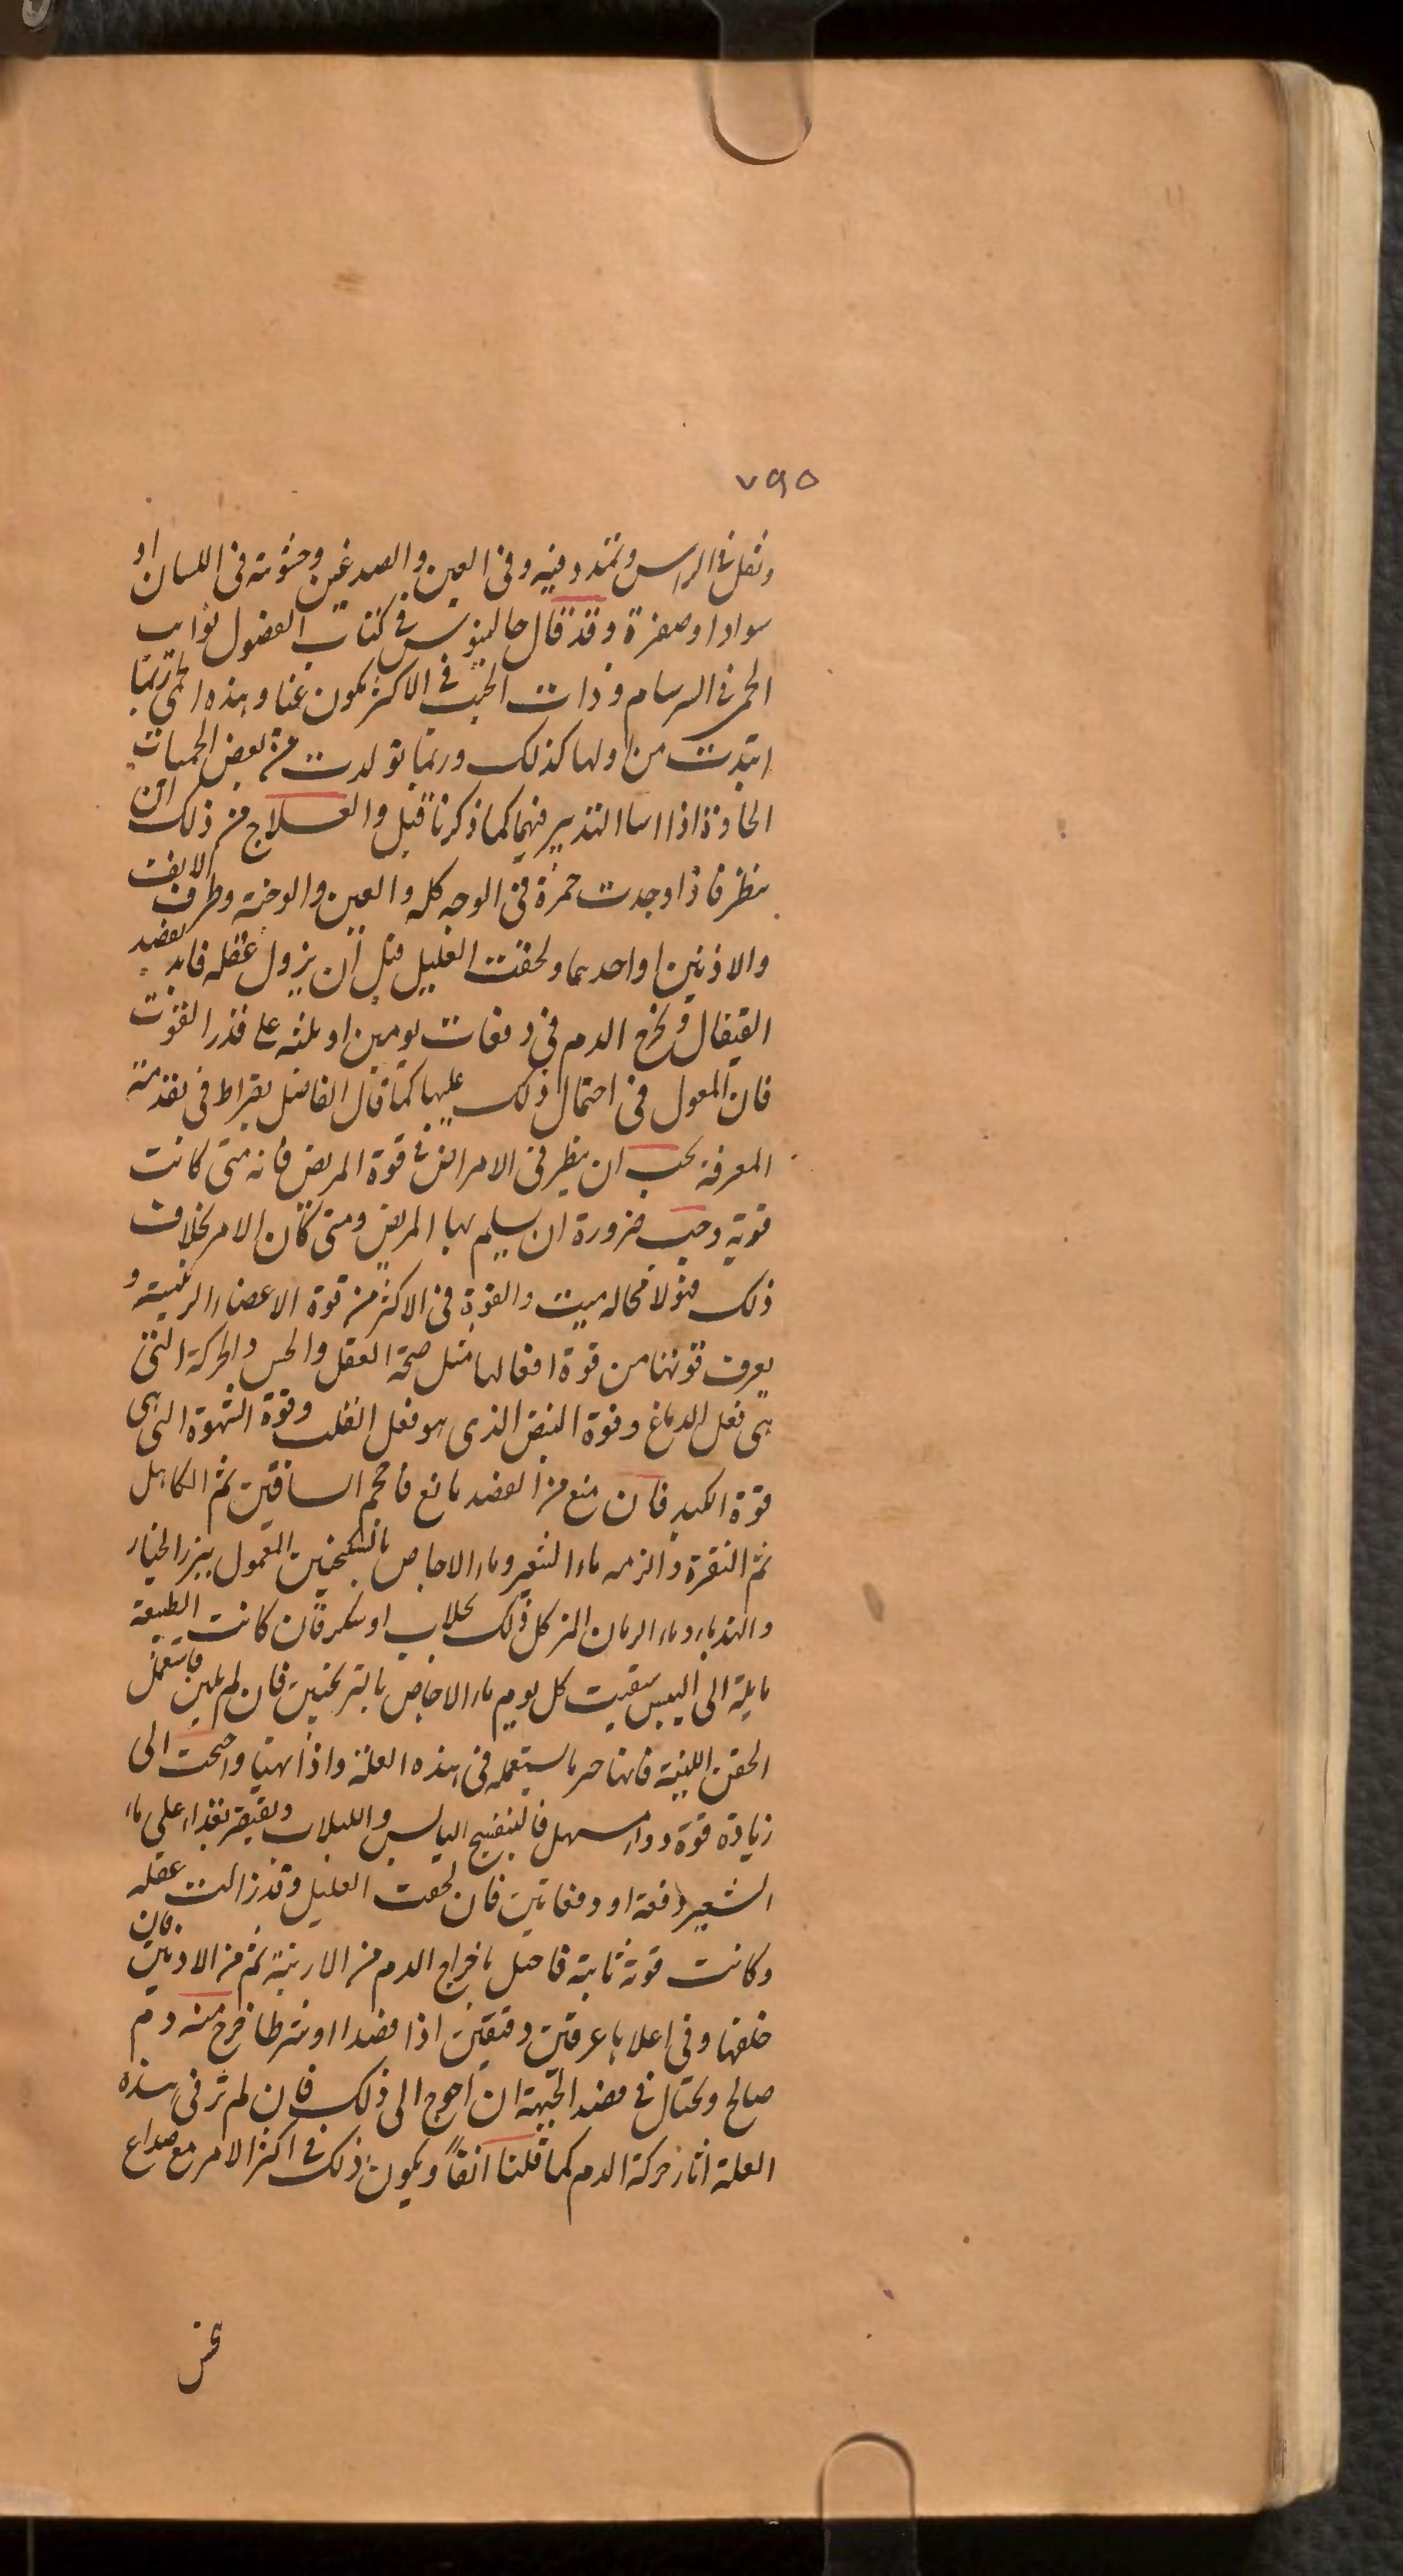 ٧٩٥
وثقل فى الراس وتمدد فيه وفى العين والصدغين وخشونة فى اللسان او
سوادا وصفرة وقد قال جالينوس فى كتاب الفصول نوايب
الحمى فى السرسام وذات الجنب فى الاكثر يكون غبا وهذه الحمى ربما
ابتدت من اولها كذلك وربما تولدت من بعض الحميات
الحادة اذا اسا التدبير فيها كما ذكرنا قبل والعلاج من ذلك ان
ينظر فاذا وجدت حمرة فى الوجه كله والعين والوجنة وطرف الانف
والاذنين او احدهما ولحقت العليل قبل ان يزول عقله فابد بفصد
القيفال ويخرج الدم فى دفعات يومين او ثلثه على قدر القوت
فان المعول فى احتمال ذلك عليها كما قال الفاضل بقراط فى تقدمة
المعرفة يجب ان ينظر فى الامراض فى قوة المريض فانه متى كانت
قوية وجب ضرورة ان يسلم بها المريض ومتى كان الامر بخلاف
ذلك فهو لا محاله ميت والقوة فى الاكثر من قوة الاعضاء الرئيسية و
يعرف قوتها من قوة افعالها مثل صحة العقل والحس والحركة التى
هى فعل الدماغ وقوة النبض الذى هو فعل القلب وقوة الشهوة التى هى
قوة الكبد فان منع من الفصد مانع فاحجم الساقين ثم الكاهل
ثم النقرة والزمه ماء الشعير وماء الاجاص بالسكنجبين المعمول ببزر الخيار
والهندباء وماء الرمان المز كل ذلك بجلاب او سكر فان كانت الطبيعة
مايلة الى اليبس سقيت كل يوم ماء الاجاص بالترنجبين فان لم يلين فاستعمل
الحقن اللينة فانها خير ما يستعمله فى هذه العلة واذا تهيا واحتجت الى
زيادة قوة دواء مسهل فالبنفسج اليابس واللبلاب ويقتصر بغذاء على ماء
الشعير دفعة او دفعاتين فان لحقت العليل وقد زالت عقله
وكانت قوة ثابتة فاحتل باخراج الدم من الارنبة ثم من الاذنين فان
خلفها وفى اعلاها عرقين دقيقين اذا فصدا او شرطا خرج منه دم
صالح ويحتال فى فصد الجبهة ان احوج الى ذلك فان لم تر فى هذه
العلة اثار حركة الدم كما قلنا انفاً ويكون ذلك فى اكثر الامر مع صداع